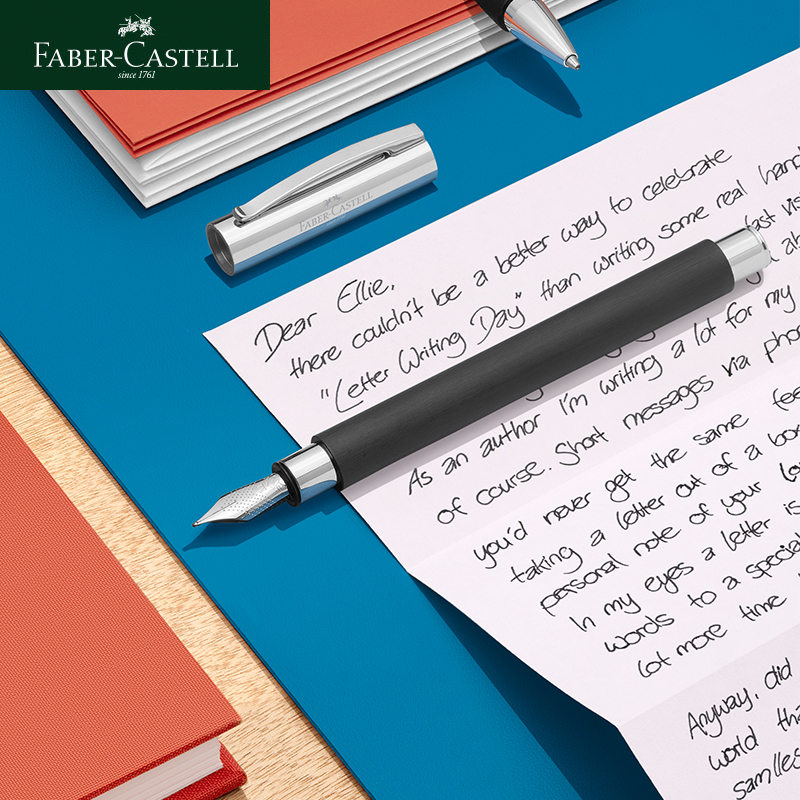 FABER-CASTELL
since 1761
FABER-CASTELL
Dear Ellie,
there couldn't be a better way to celebrate
"Letter Writing Day" than writing some real
last
As an author I'm writing a lot for my
of course. Short messages via
you'd never get the same
taking a letter out of a
personal note of your
In my eyes a letter is
words to a special
lot more time
Anyway, did
world